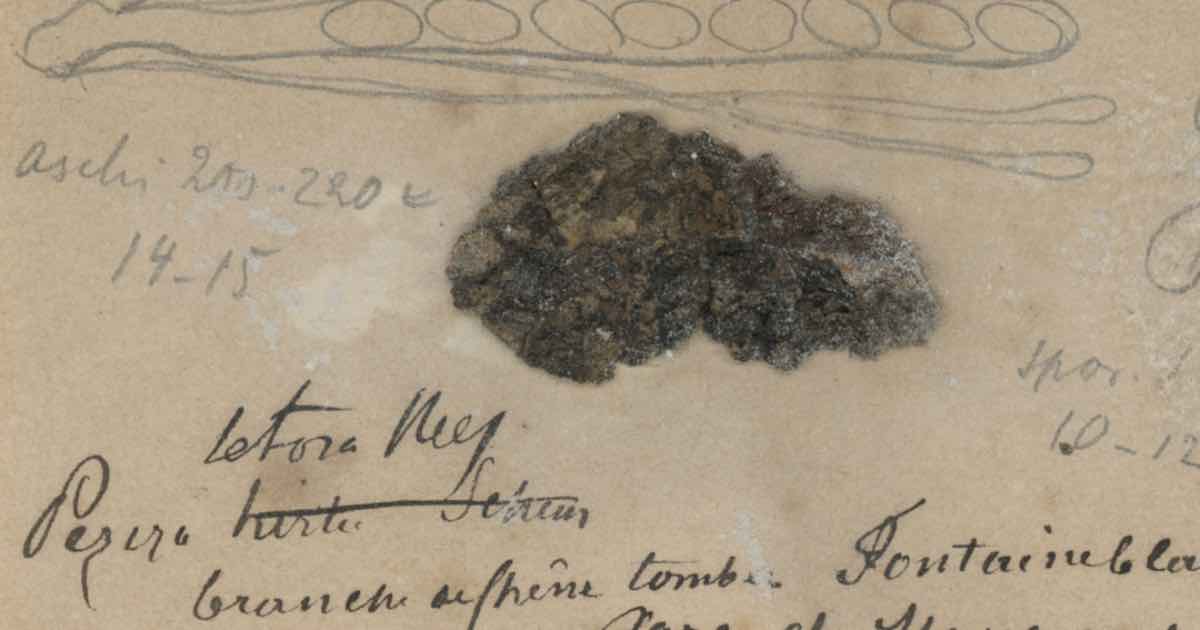 aschi 200-220 =
14-15
spor.
10-12
setosa Nees
Peziza hirta Schum
branche de frêne tombé. Fontainebleau